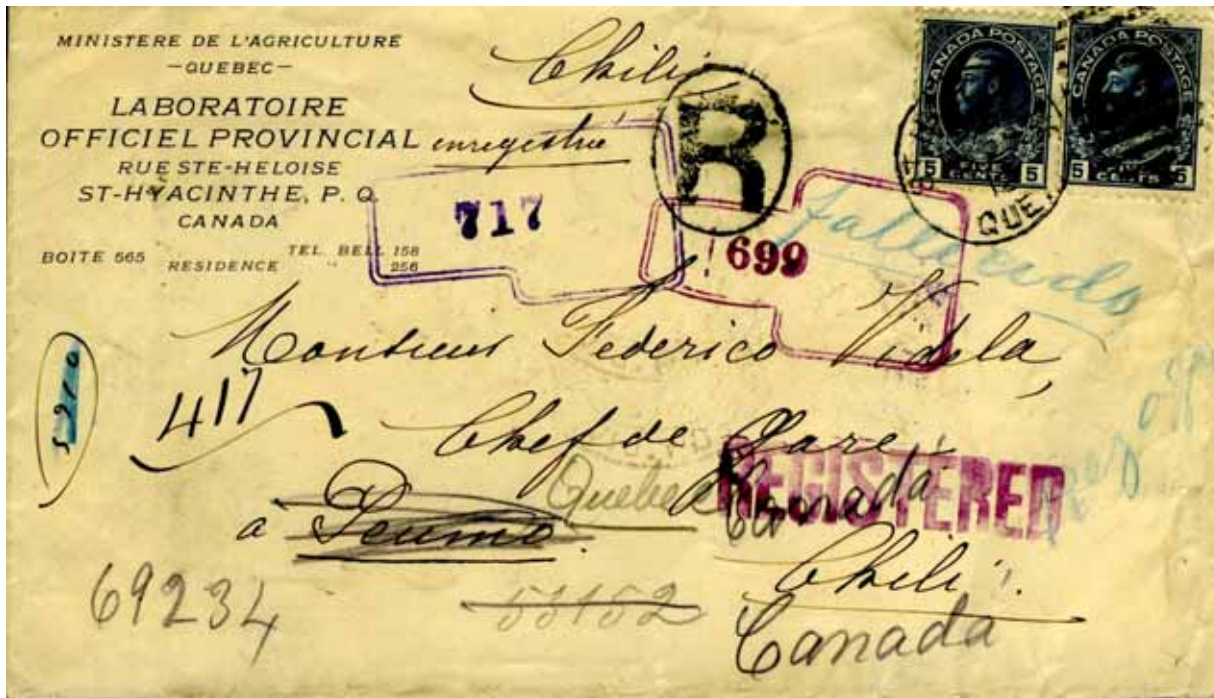 MINISTERE DE L'AGRICULTURE
—QUEBEC—
LABORATOIRE
OFFICIEL PROVINCIAL
RUE STE-HELOISE
ST-HYACINTHE, P. Q.
CANADA
BOITE 565 TEL. BELL 158
RESIDENCE " 256
Chili
enregistrée
R
CANADA POSTAGE
5 FIVE CENTS 5
CANADA POSTAGE
5 CENTS 5
QUE.
717
699
fallecido
Monsieur Federico Videla,
417
Chef de Gare
Quebec Canada
REGISTERED
a Peumo.
Chili.
69234
53152
Canada